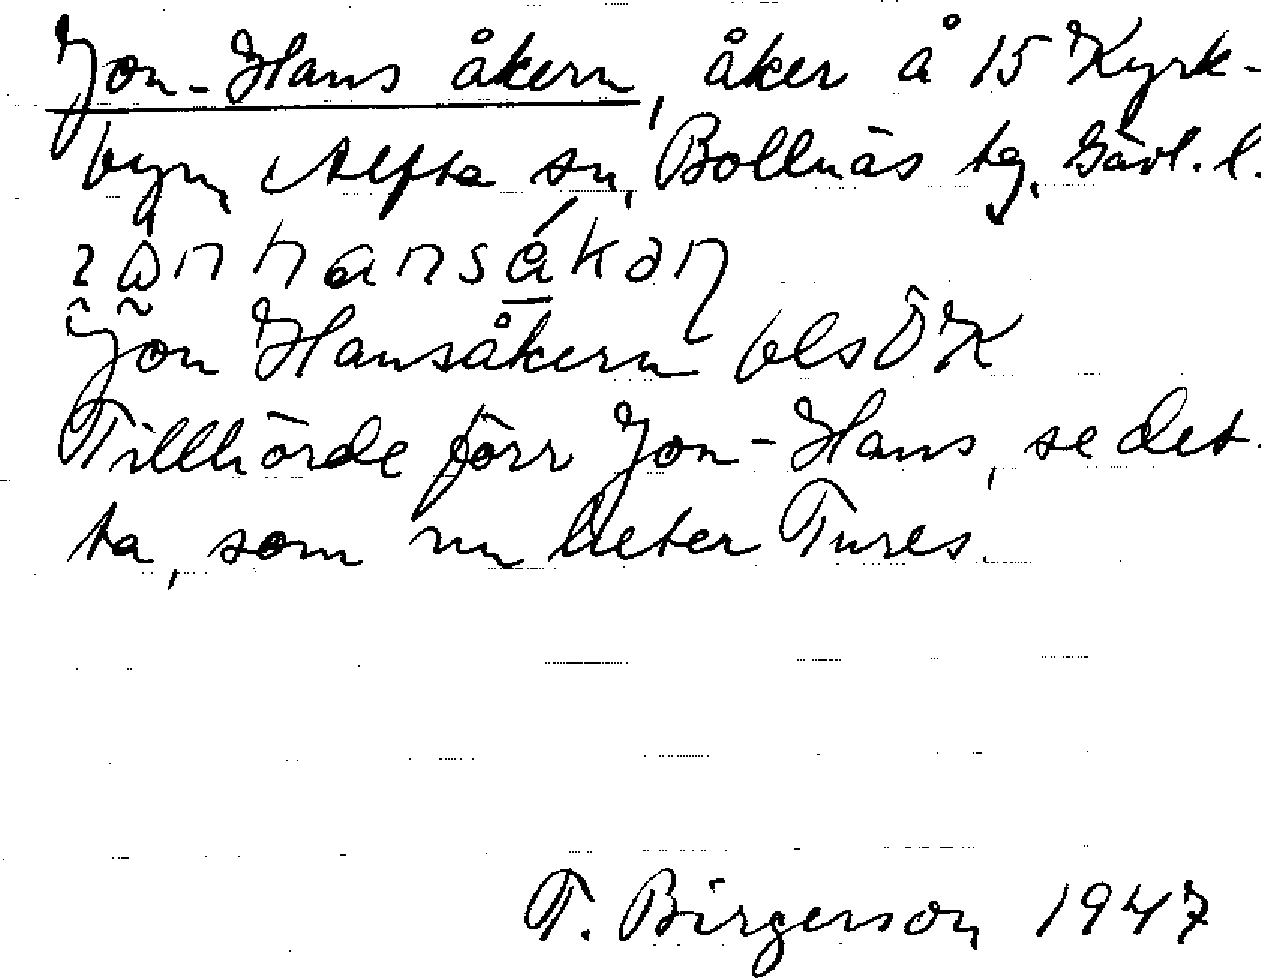 Jon-Hans åkern, åker å 15 Kyrk-
byn, Alfta sn, Bollnäs tg, Gävl. l.
Jon Hansåkern bls ÖK
Tillhörde förr Jon-Hans, se det-
ta, som nu heter Tures.
T. Birgerson 1947